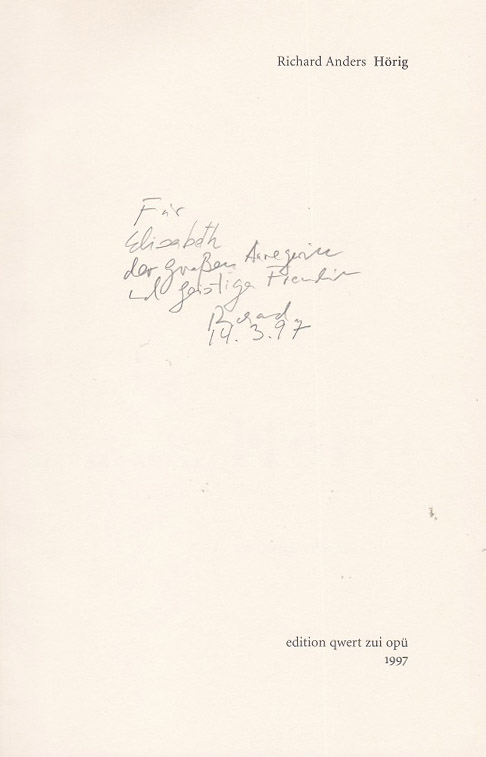 Richard Anders Hörig
Für
Elisabeth
der großen Anregerin
und geistigen Freundin
Richard
14. 3. 97
edition qwert zui opü
1997